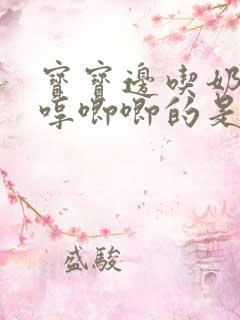 寶寶邊喫奶
哼唧唧的是
盛駿